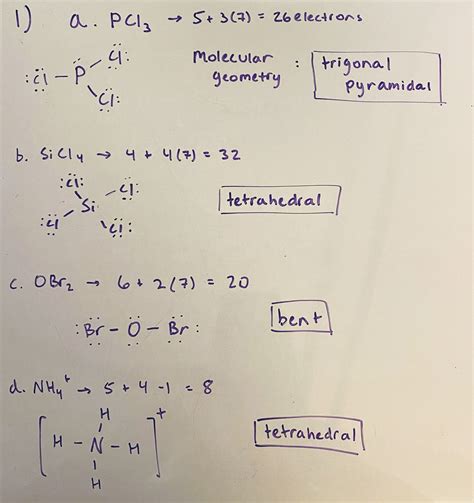 1) a. PCl₃ → 5 + 3(7) = 26 electrons
:Cl – P – Cl:
Cl:
Molecular geometry : trigonal pyramidal
b. SiCl₄ → 4 + 4(7) = 32
:Cl: Cl:
Si
:Cl Cl:
tetrahedral
c. OBr₂ → 6 + 2(7) = 20
:Br – O – Br:
bent
d. NH₄⁺ → 5 + 4 - 1 = 8
H
[H – N – H]⁺
H
tetrahedral